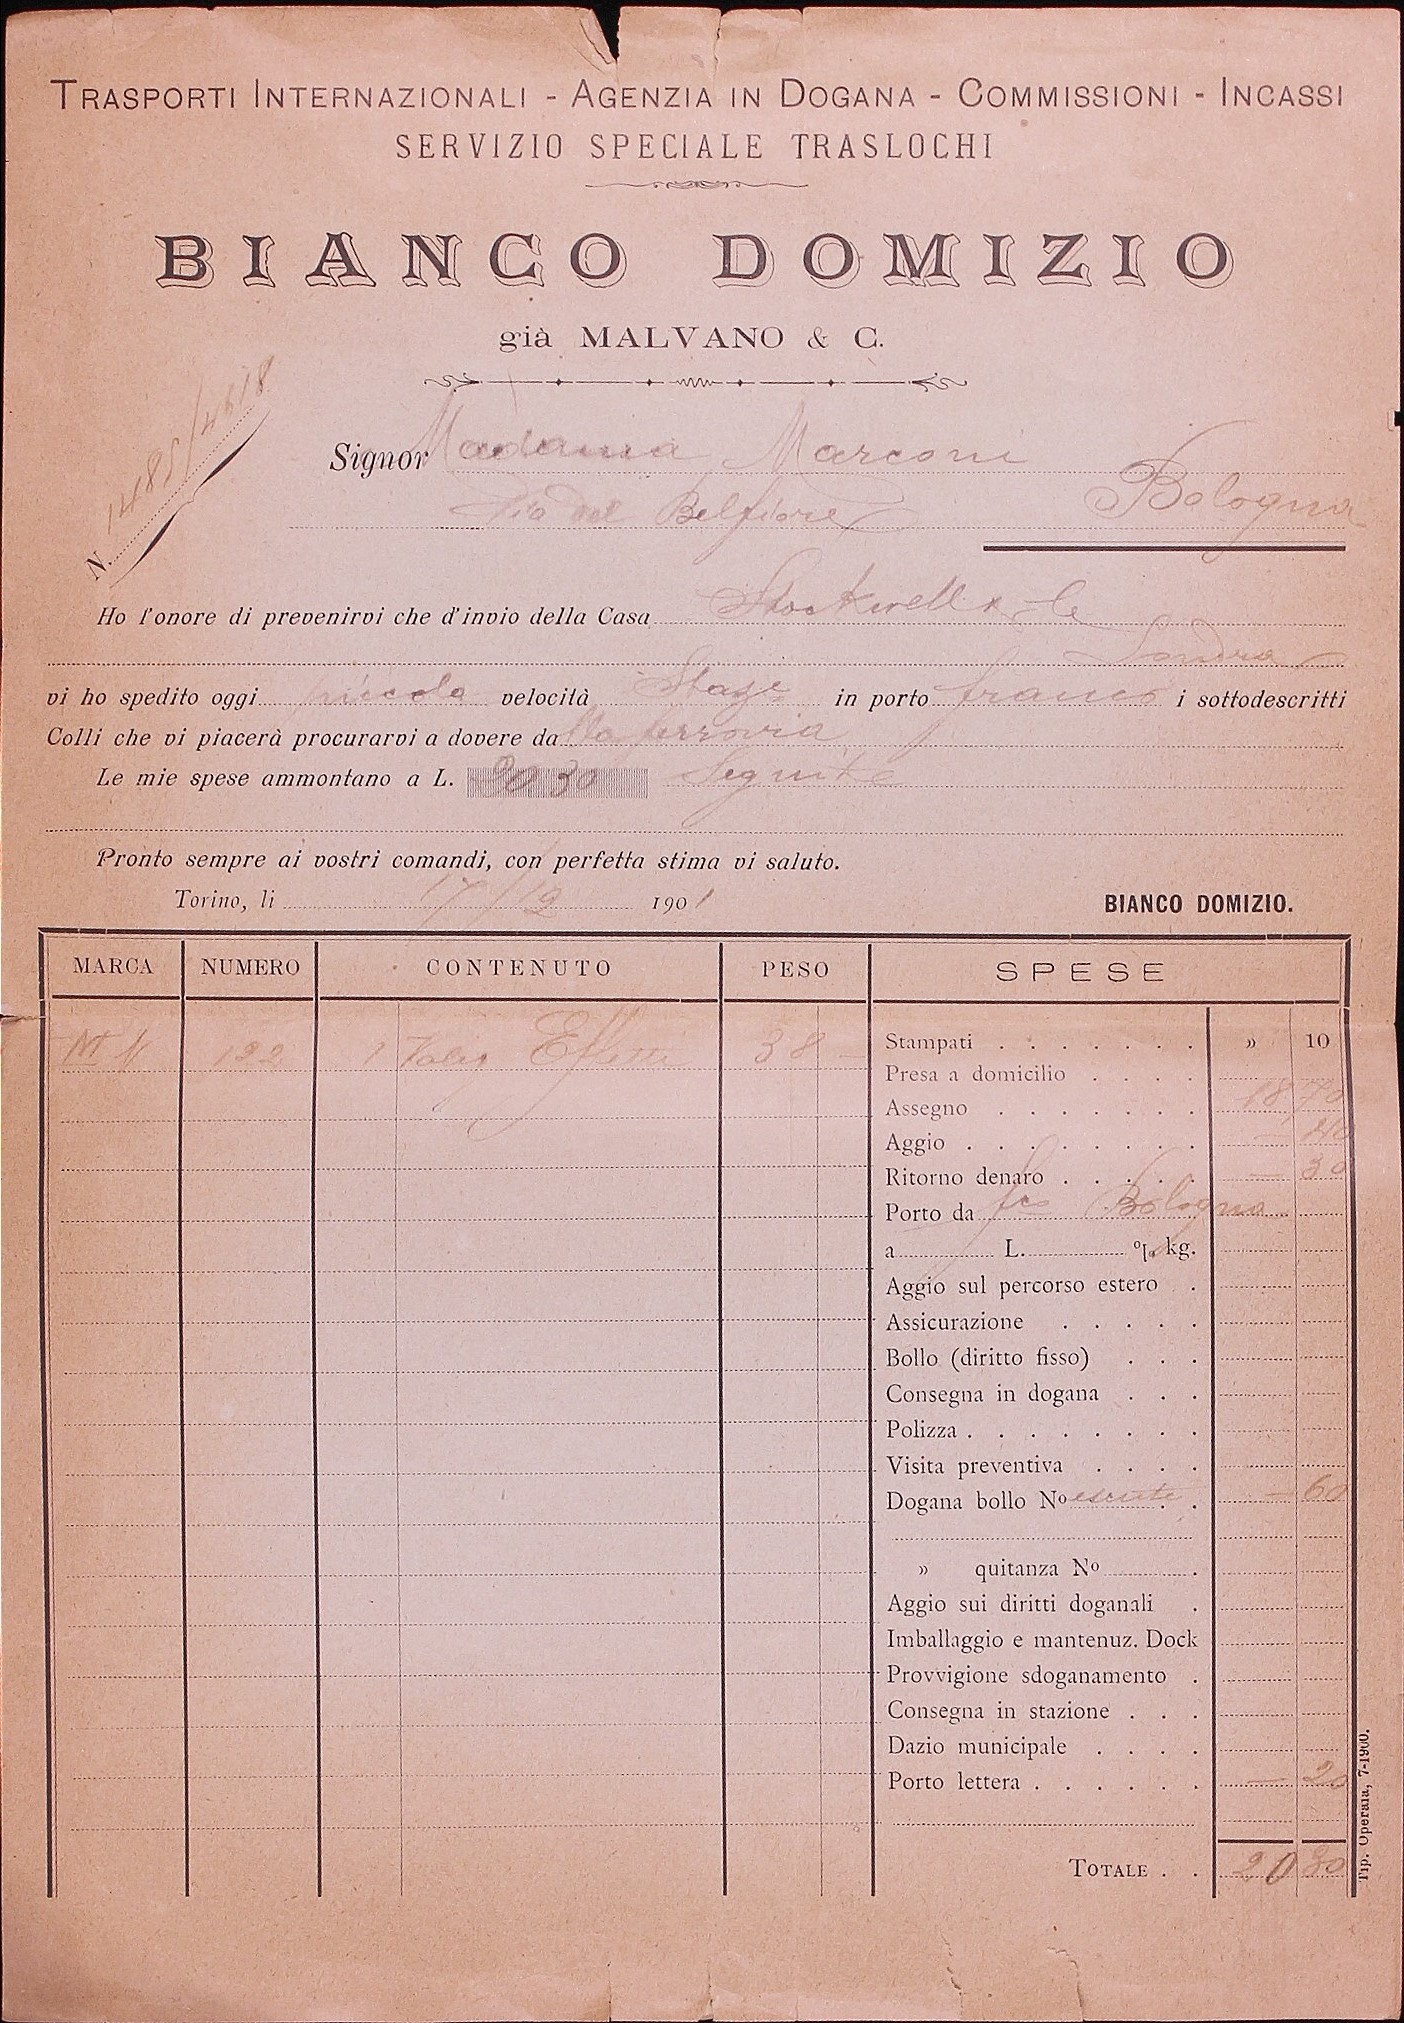 TRASPORTI INTERNAZIONALI - AGENZIA IN DOGANA - COMMISSIONI - INCASSI
SERVIZIO SPECIALE TRASLOCHI
BIANCO DOMIZIO
già MALVANO & C.
N. 1485/4618
Signor Madama Marconi
Via del Belfiore Bologna
Ho l'onore di prevenirvi che d'invio della Casa Stockwell & Co
Londra
vi ho spedito oggi piccola velocità Staze in porto franco i sottodescritti
Colli che vi piacerà procurarvi a dovere dalla ferrovia
Le mie spese ammontano a L. 20 30 Seguite
Pronto sempre ai vostri comandi, con perfetta stima vi saluto.
Torino, li 17/12 1901 BIANCO DOMIZIO.
MARCA NUMERO CONTENUTO PESO SPESE
M 122 1 Valig Effetti 38 —
Stampati . . . . . . . » 10
Presa a domicilio . . . .
Assegno . . . . . . . 18 70
Aggio . . . . . . . . — 40
Ritorno denaro . . . . . — 30
Porto da fco Bologna
a L. % kg.
Aggio sul percorso estero .
Assicurazione . . . . .
Bollo (diritto fisso) . . .
Consegna in dogana . . .
Polizza . . . . . . . .
Visita preventiva . . . .
Dogana bollo Nº esente . — 60
» quitanza Nº .
Aggio sui diritti doganali .
Imballaggio e mantenuz. Dock
Provvigione sdoganamento .
Consegna in stazione . . .
Dazio municipale . . . .
Porto lettera . . . . . . — 20
TOTALE . . 20 30
Tip. Operaia, 7-1900.